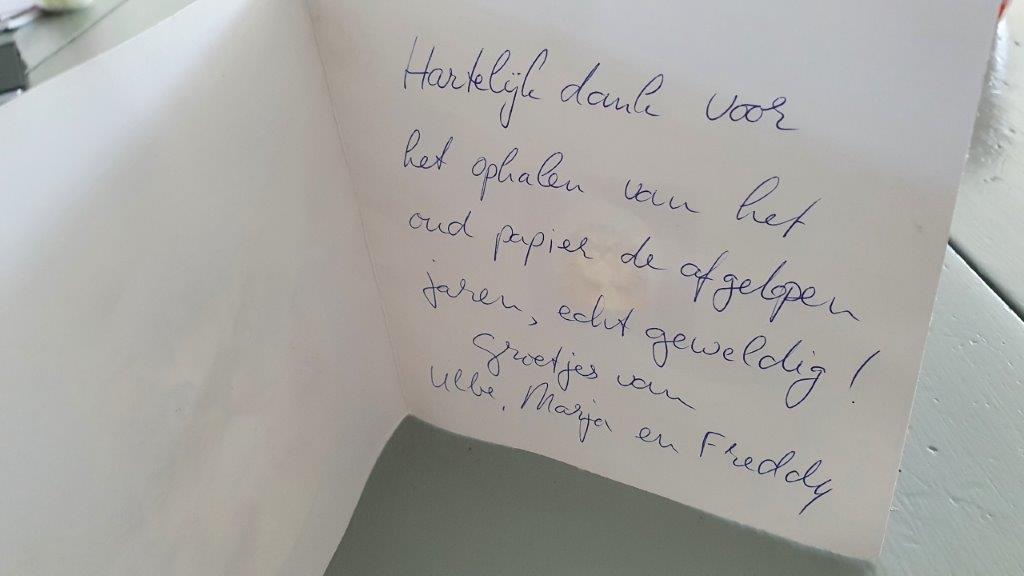 Hartelijk dank voor
het ophalen van het
oud papier de afgelopen
jaren, echt geweldig!
Groetjes van
Ulbe, Marja en Freddy